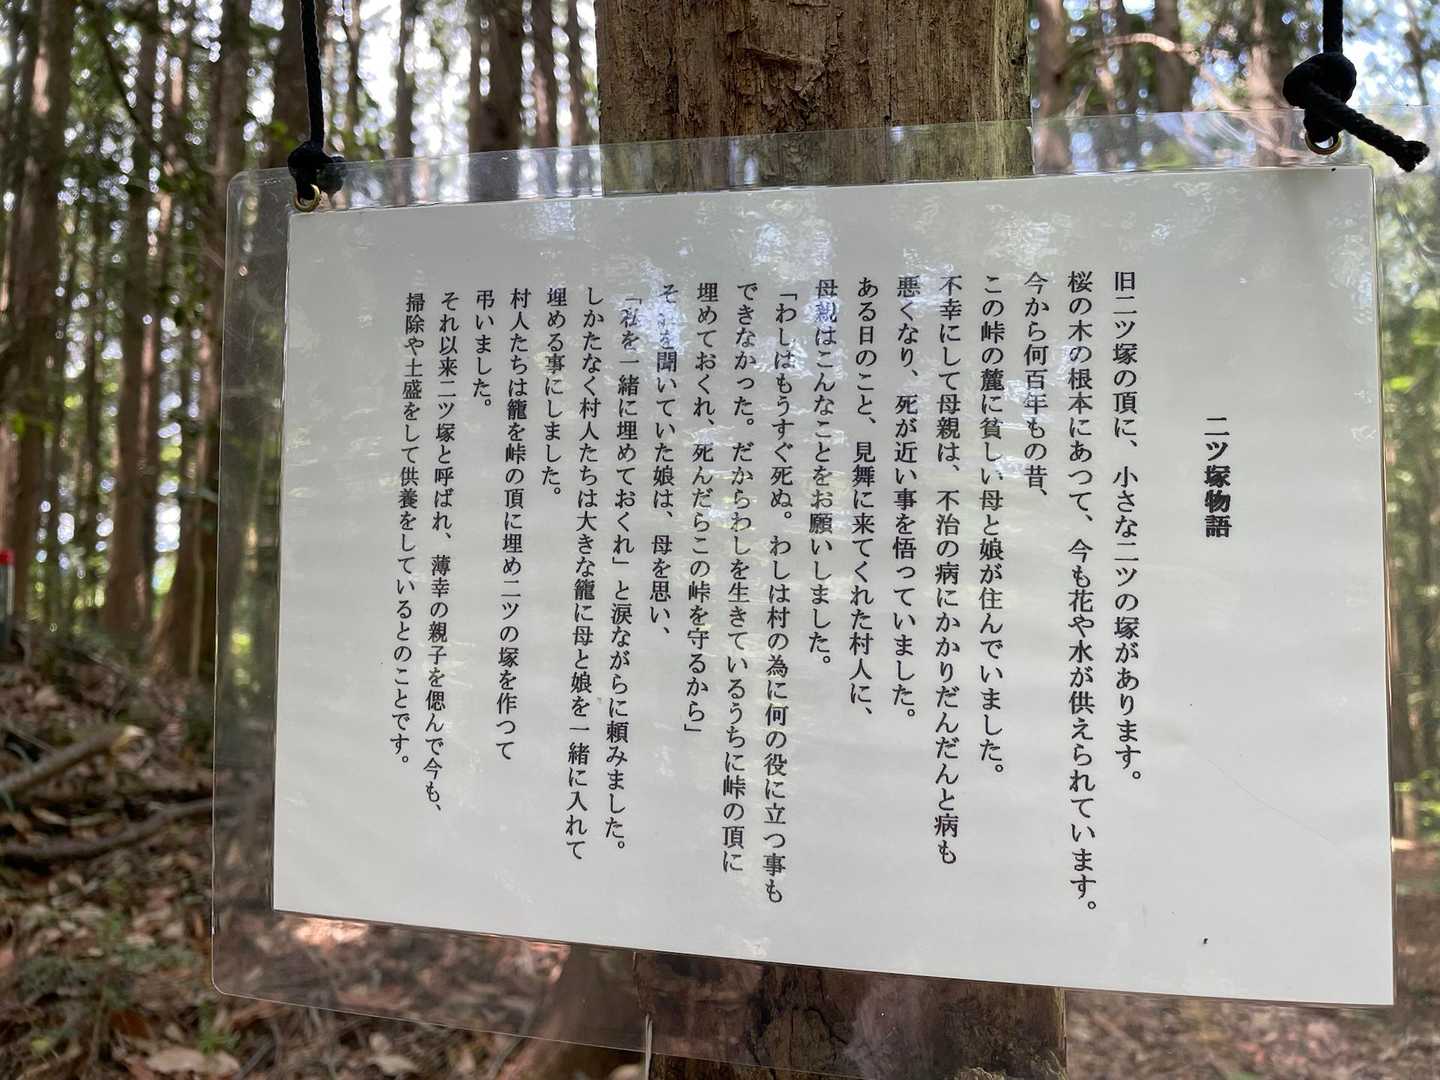 二ツ塚物語
旧二ツ塚の頂に、小さな二ツの塚があります。
桜の木の根本にあつて、今も花や水が供えられています。
今から何百年もの昔、
この峠の麓に貧しい母と娘が住んでいました。
不幸にして母親は、不治の病にかかりだんだんと病も
悪くなり、死が近い事を悟っていました。
ある日のこと、見舞に来てくれた村人に、
母親はこんなことをお願いしました。
「わしはもうすぐ死ぬ。わしは村の為に何の役に立つ事も
できなかった。だからわしを生きているうちに峠の頂に
埋めておくれ、死んだらこの峠を守るから」
そ を聞いていた娘は、母を思い、
「私を一緒に埋めておくれ」と涙ながらに頼みました。
しかたなく村人たちは大きな籠に母と娘を一緒に入れて
埋める事にしました。
村人たちは籠を峠の頂に埋め二ツの塚を作つて
弔いました。
それ以来二ツ塚と呼ばれ、薄幸の親子を偲んで今も、
掃除や土盛をして供養をしているとのことです。